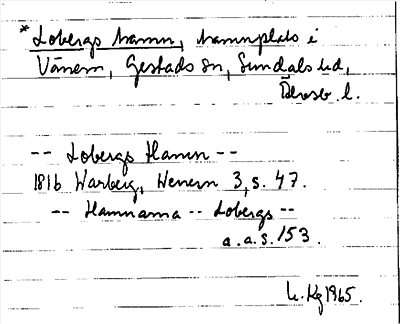 *Lobergs hamn, hamnplats i
Vänern, Gestads sn, Sundals hd,
Älvsb. l.
-- Lobergs Hamn --
1816 Warberg, Wenern 3, s. 47.
-- Hamnarna -- Lobergs --
a.a.s. 153.
1965.